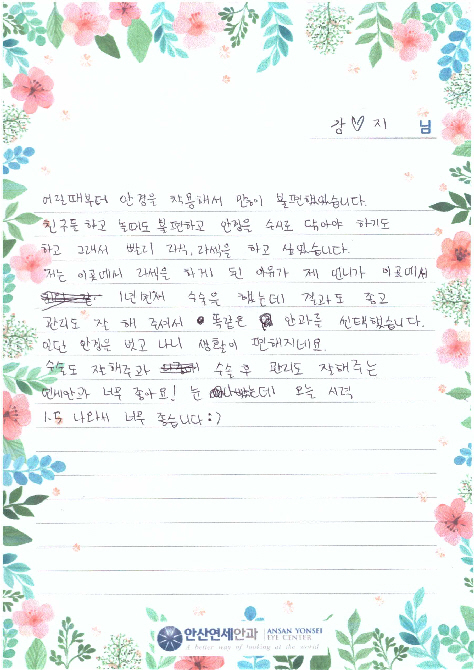 강♡지 님
어릴때부터 안경은 착용해서 많이 불편했었습니다.
친구들하고 놀때도 불편하고 안경은 수시로 닦아야 하기도
하고 그래서 빨리 라식, 라섹을 하고 싶었습니다.
저는 이곳에서 라섹을 하게 된 이유가 제 언니가 이곳에서
1년전쯤 수술을 했는데 결과도 좋고
관리도 잘 해 주셔서 똑같은 안과를 선택했습니다.
일단 안경은 벗고 나니 생활이 편해지네요.
수술도 잘해주고 수술 후 관리도 잘해주는
연세안과 너무 좋아요! 눈 오늘 시력
1.5 나와서 너무 좋습니다 :)
안산연세안과 ANSAN YONSEI EYE CENTER
A better way of looking at the world